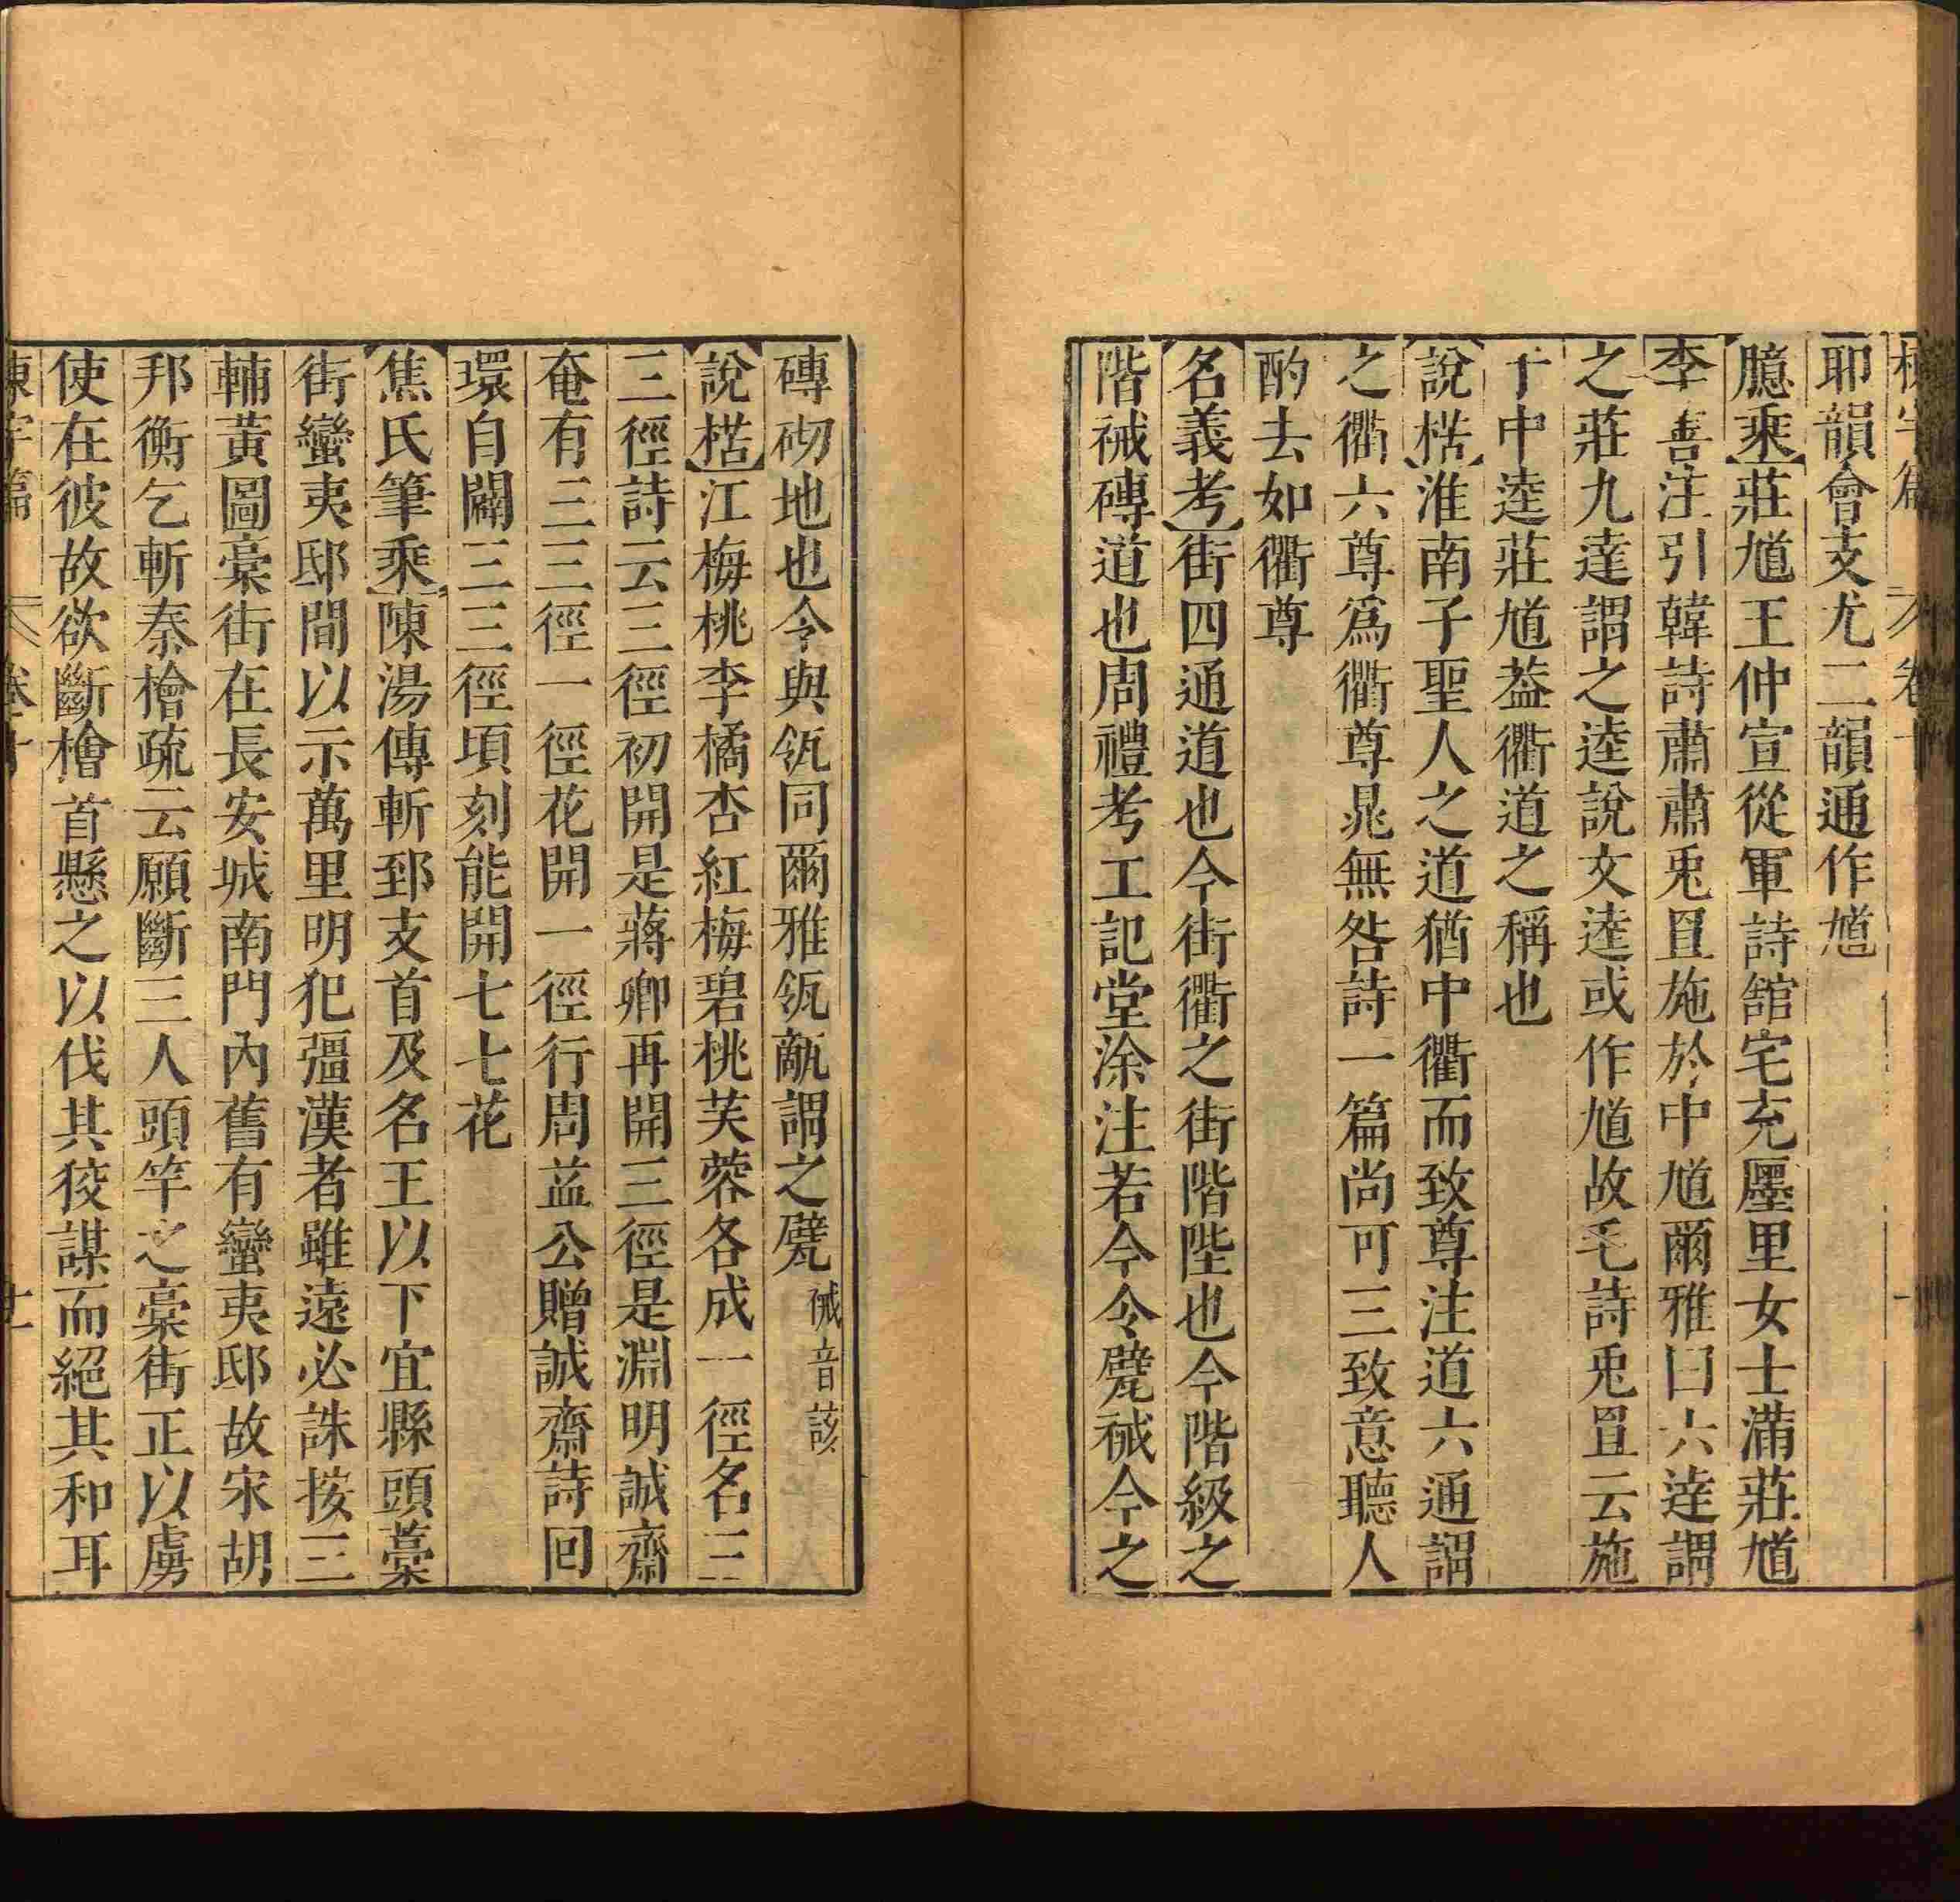 耶韻會支尤二韻通作馗
臆乘莊馗王仲宣從軍詩舘宅充廛里女士滿莊馗
李善注引韓詩肅肅兎罝施於中馗爾雅曰六逹謂
之莊九達謂之逵說文逵或作馗故毛詩兎罝云施
于中逵莊馗葢衢道之稱也
說楛淮南子聖人之道猶中衢而致尊注道六通謂
之衢六尊爲衢尊晁無咎詩一篇尚可三致意聽人
酌去如衢尊
名義考街四通道也今街衢之街階陛也今階級之
階祴磚道也周禮考工記堂涂注若今令甓祴今之
磚砌地也令與瓴同爾雅瓴甋謂之甓祴音該
說楛江梅桃李橘杏紅梅碧桃芙蓉各成一徑名三
三徑詩云三徑初開是蔣卿再開三徑是淵明誠齋
奄有三三徑一徑花開一徑行周益公贈誠齋詩回
環自闢三三徑頃刻能開七七花
焦氏筆乘陳湯傳斬郅支首及名王以下宜縣頭藁
街蠻夷邸間以示萬里明犯彊漢者雖遠必誅按三
輔黃圖藁街在長安城南門內舊有蠻夷邸故宋胡
邦衡乞斬秦檜疏云願斷三人頭竿之藁街正以虜
使在彼故欲斷檜首懸之以伐其狡謀而絕其和耳